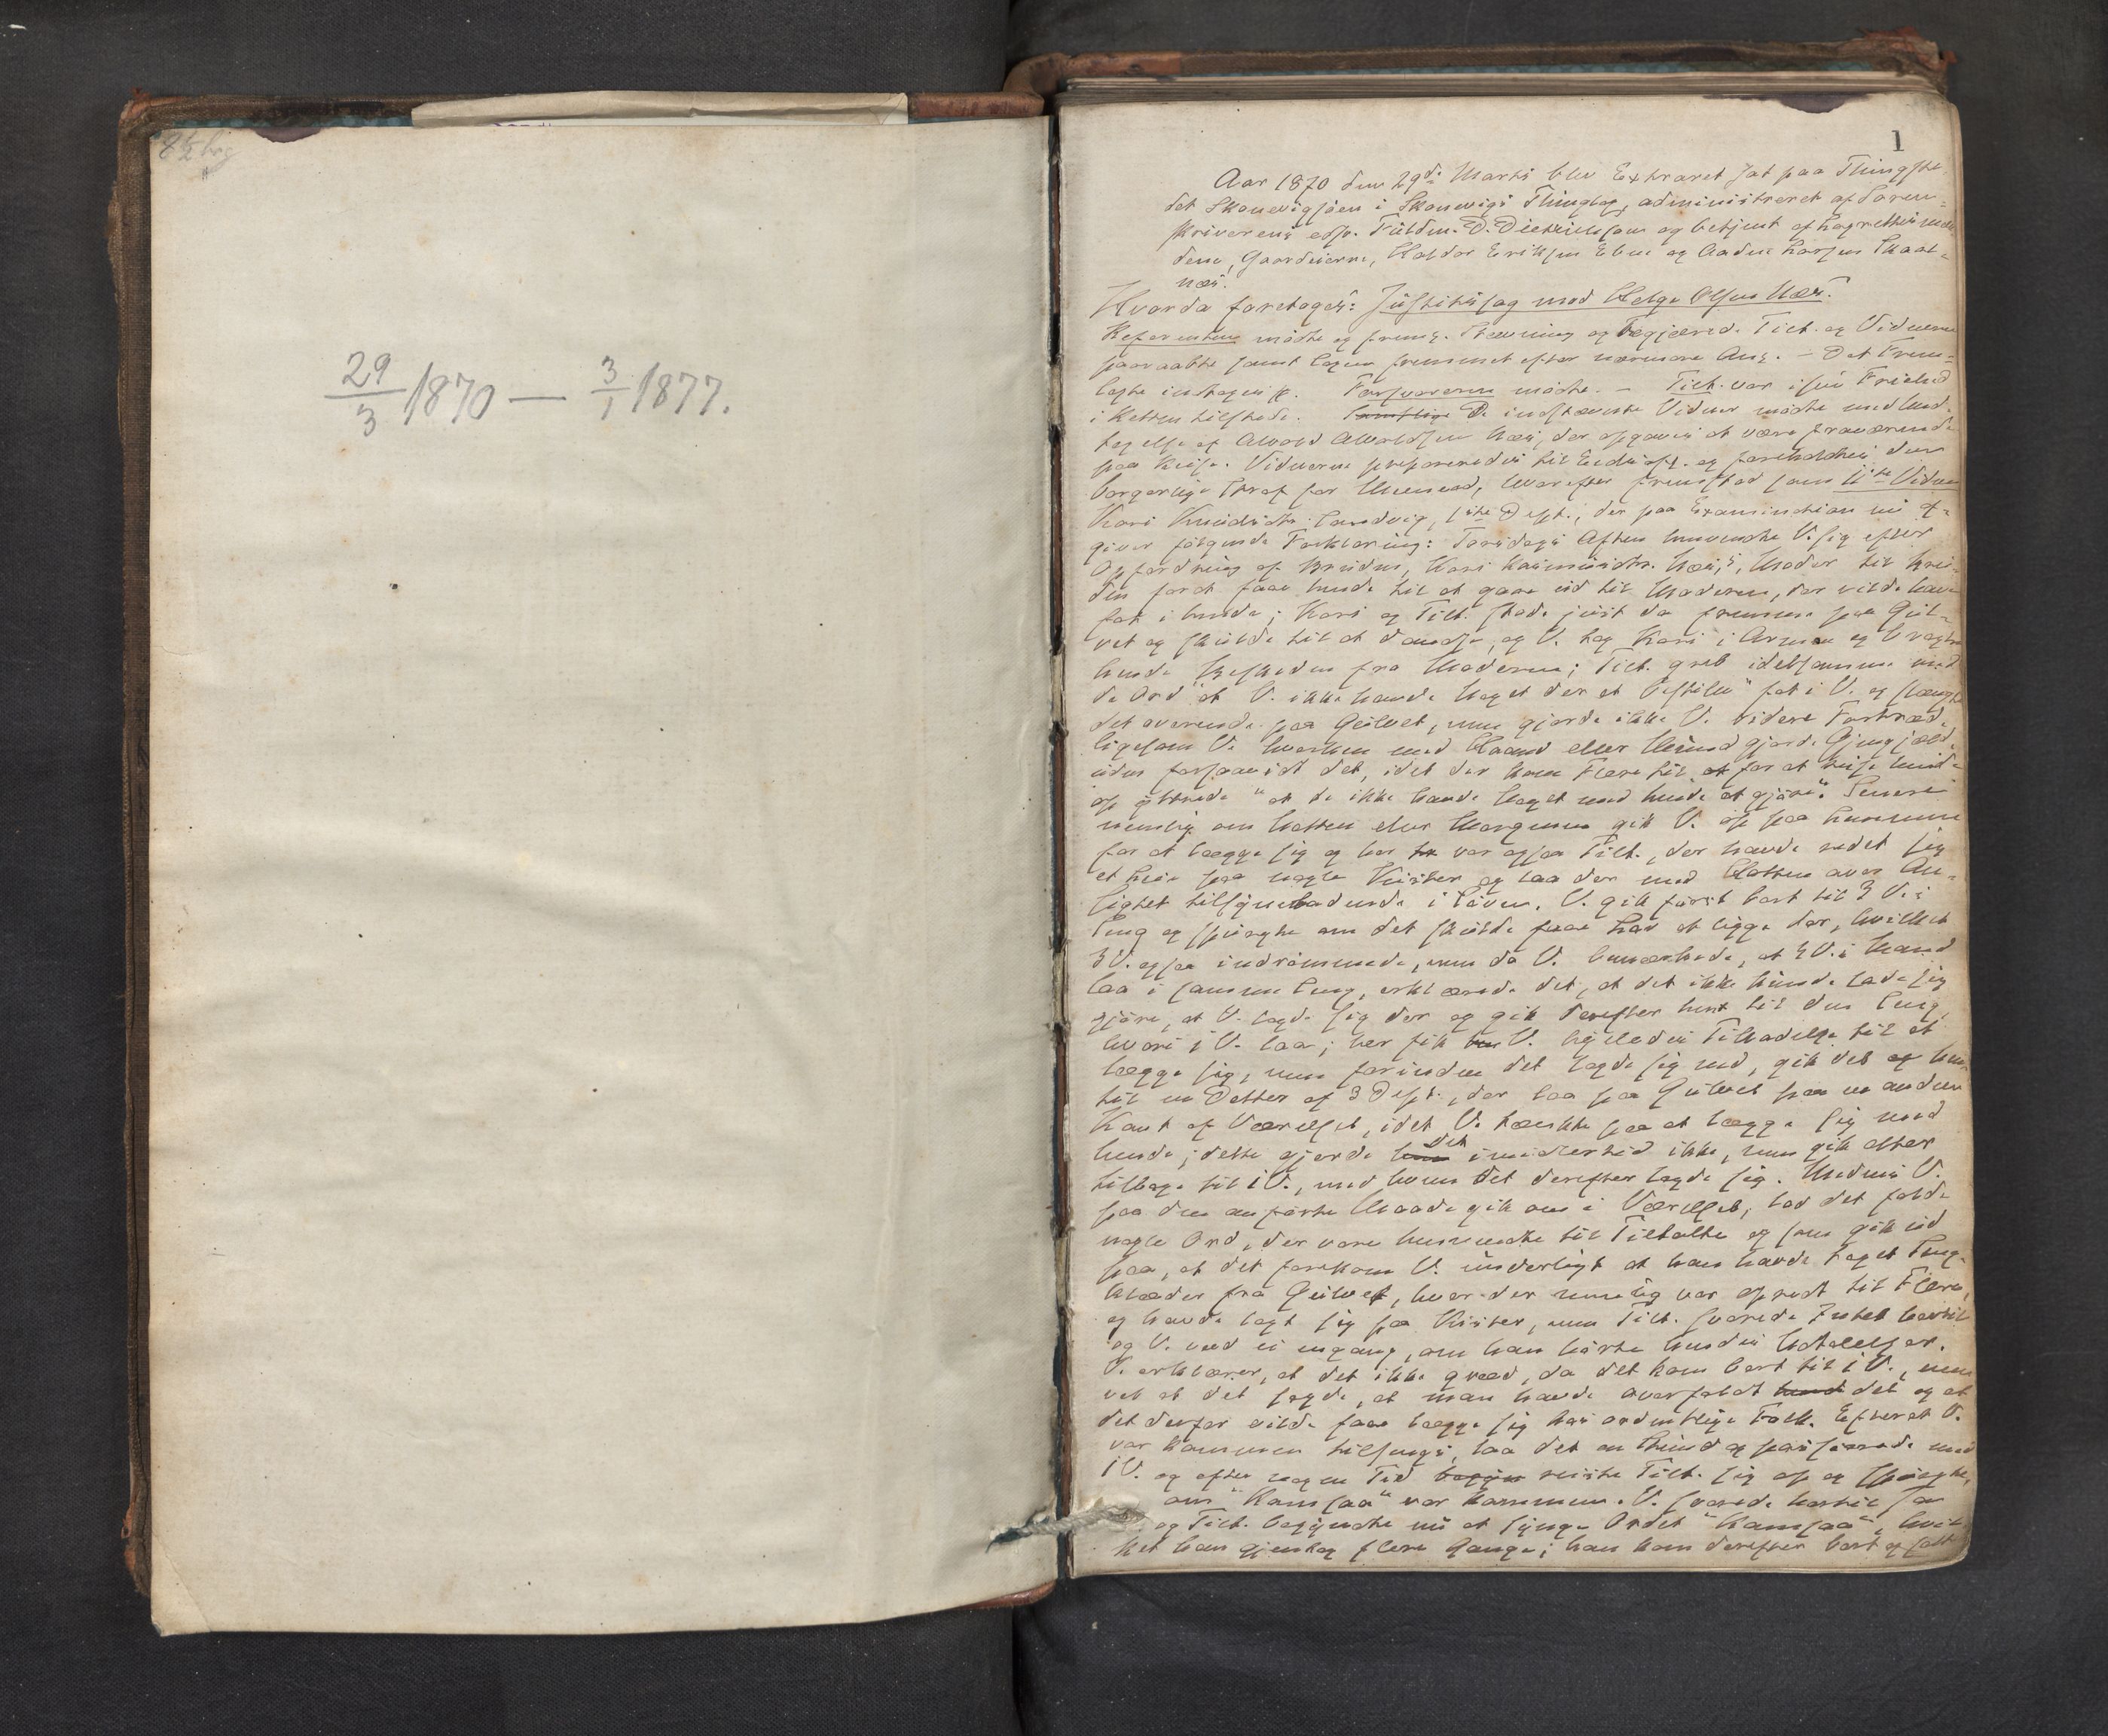 29/3 1870 — 3/1 1877.
1
Aar 1870 den 29de Marts blev Extraret sat paa Thingste-
det Skonevigsjøen i Skonevigs Thinglag, administreret af Soren-
skriverens edsv. Fuldm. D. Diedrichsen og betjent af Lagrettesmæn-
dene, Gaardeierne, Haldor Eriksen Ebne og Aadne Larsen Skaal-
næs.
Hvorda foretoges: Justitssag mod Helge Olsen Næs.
Referenten mødte og freml. Stævning og begjærede Tilt. og Vidnerne
paaraabte samt Sagen fremmet efter nærmere Ang. – Det Frem-
lagte indtages sp. Forsvareren mødte. – Tilt. var i sin Frihed
i Retten tilstede. Samtlige De indstævnte Vidner mødte med Und-
tagelse af Amord Amordsen Næs, der opgaves at være fraværende
paa Reise. Vidnerne præpareredes til Eds Afl. og foreholdtes den
borgerlige Straf for Meneed, hvorefter fremstod som 11te Vidne
Kari Knudsdtr. Sandvig, 1ste Dept., der paa Examination nu af-
giver følgende Forklaring: Torsdags Aften henvendte V. sig efter
Opfordring af Bruden, Kari Rasmusdtr. Næs's, Moder til Bru-
den for at faae hende til at gaae ud til Moderen, der vilde have
fat i hende; Kari og Tilt. stode just da fremme paa Gul-
vet og skulde til at dandse, og V. tog Kari i Armen og bragte
hende Beskeden fra Moderen; Tilt. greb idetsamme med
de Ord "at V. ikke havde Noget der at bestille" fat i V. og slængte
det overende paa Gulvet, men gjorde ikke V. videre Fortræd,
ligesom V. hverken med Haand eller Mund gjorde Gjengjæld,
uden forsaavidt det, idet der kom Flere til at for at reise hende
op yttrede "at de ikke havde Noget med hende at gjøre". Senere
nemlig om Natten eller Morgenen gik V. op paa Kammeret
for at lægge sig og her var ogsaa Tilt., der havde redet sig
et Leie paa nogle Kister og laa der med Hatten over An-
sigtet tilsyneladende i Søvn. V. gik først bort til 3 V.s
Seng og spurgte om det skulde faae Lov at ligge der, hvilket
3 V. ogsaa indrømmede, men da V. bemærkede, at 3 V.s Mand
laa i samme Seng, erklærede det, at det ikke kunde lade sig
gjøre, at V. lagde sig der og gik derefter hent til den Seng,
hvori 1 V. laa; her fik hun V. ligeledes Tilladelse til at
lægge sig, men forinden det lagde sig ned, gik det og hen
til en Datter af 3 Dept., der laa paa Gulvet paa en anden
Kant af Værelset, idet V. tænkte paa at lægge sig med
hende; dette gjorde hun det imidlertid ikke, men gik atter
tilbage til 1 V., med hvem det derefter lagde sig. Medens V.
paa den anførte Maade gik om i Værelset, lod det falde
nogle Ord, der vare henvendte til Tiltalte og som gik ud
paa, at det forekom V. underligt at han havde taget Seng-
klæder fra Gulvet, hvor der nemlig var opredt til Flere,
og havde lagt sig paa Kister, men Tilt. svarede Intet hertil
og V. veed ei engang, om han hørte hendes Udtalelser.
V. erklærer, at det ikke græd, da det kom bort til 1 V., men
vel at det sagde, at man havde overfaldt hende det og at
det derfor vilde faae lægge sig hos ordentlige Folk. Efterat V.
var kommen tilsengs, laa det en Stund og passiarede med
1 V. og efter nogen Tid begyn reiste Tilt. sig op og spurgte,
om "Kamsaa" var kommen. V. svarede hertil Ja
og Tilt. begyndte nu at synge Ordet "Kamsaa", hvil-
ket han gjentog flere Gange; han kom derefter bort og satte